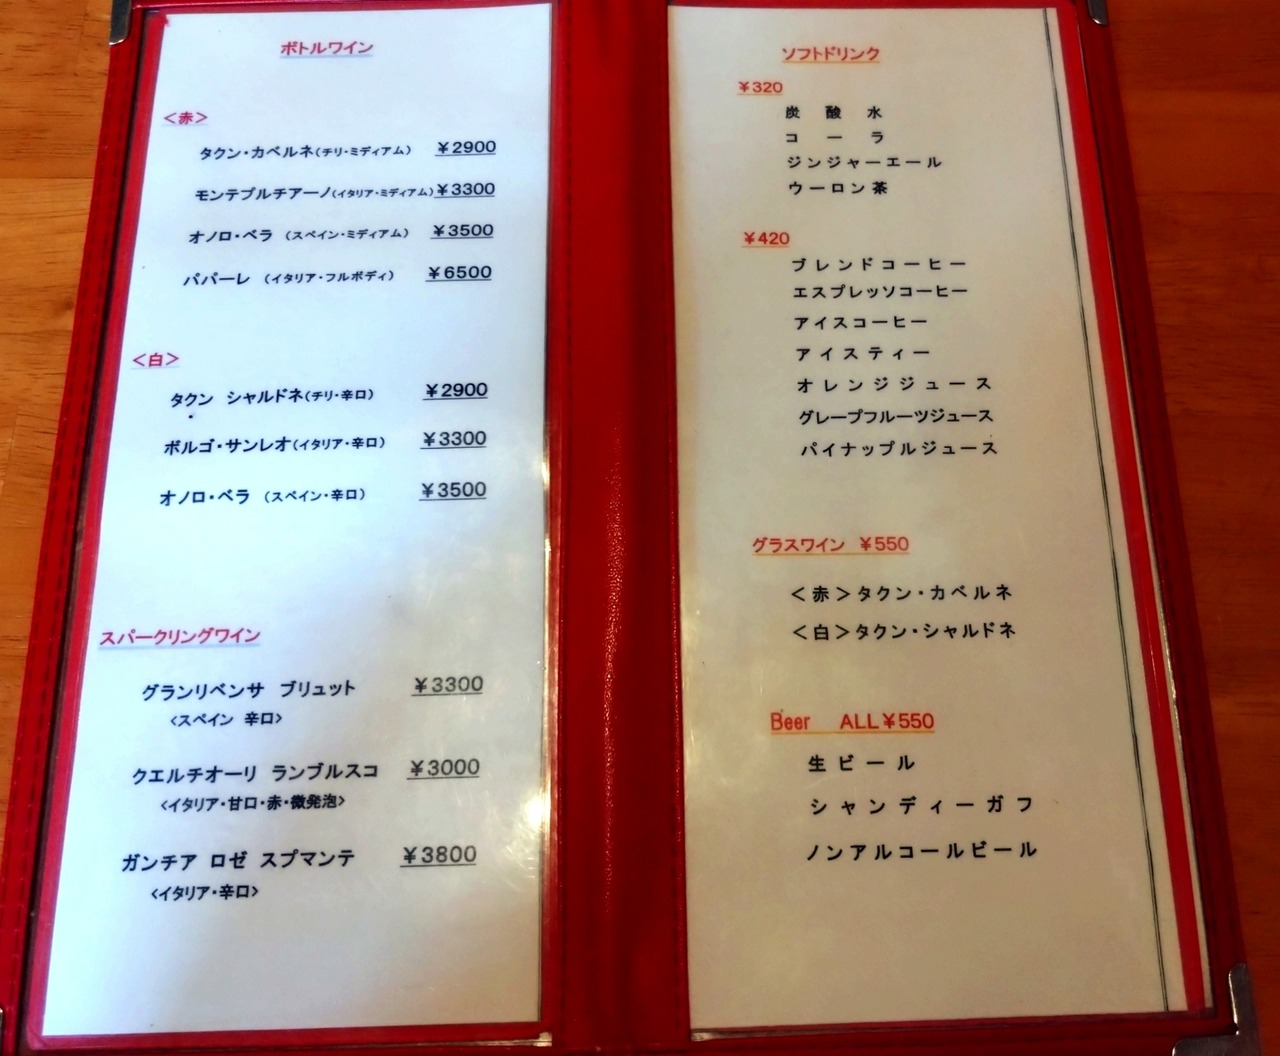 ボトルワイン
＜赤＞
タクン・カベルネ(チリ・ミディアム) ￥2900
モンテプルチアーノ(イタリア・ミディアム) ￥3300
オノロ・ベラ (スペイン・ミディアム) ￥3500
パパーレ (イタリア・フルボディ) ￥6500
＜白＞
タクン シャルドネ(チリ・辛口) ￥2900
ボルゴ・サンレオ(イタリア・辛口) ￥3300
オノロ・ベラ (スペイン・辛口) ￥3500
スパークリングワイン
グランリベンサ ブリュット ￥3300
<スペイン 辛口>
クエルチオーリ ランブルスコ ￥3000
<イタリア・甘口・赤・微発泡>
ガンチア ロゼ スプマンテ ￥3800
<イタリア・辛口>
ソフトドリンク
￥320
炭酸水
コーラ
ジンジャーエール
ウーロン茶
￥420
ブレンドコーヒー
エスプレッソコーヒー
アイスコーヒー
アイスティー
オレンジジュース
グレープフルーツジュース
パイナップルジュース
グラスワイン ￥550
＜赤＞タクン・カベルネ
＜白＞タクン・シャルドネ
Beer ALL￥550
生ビール
シャンディーガフ
ノンアルコールビール